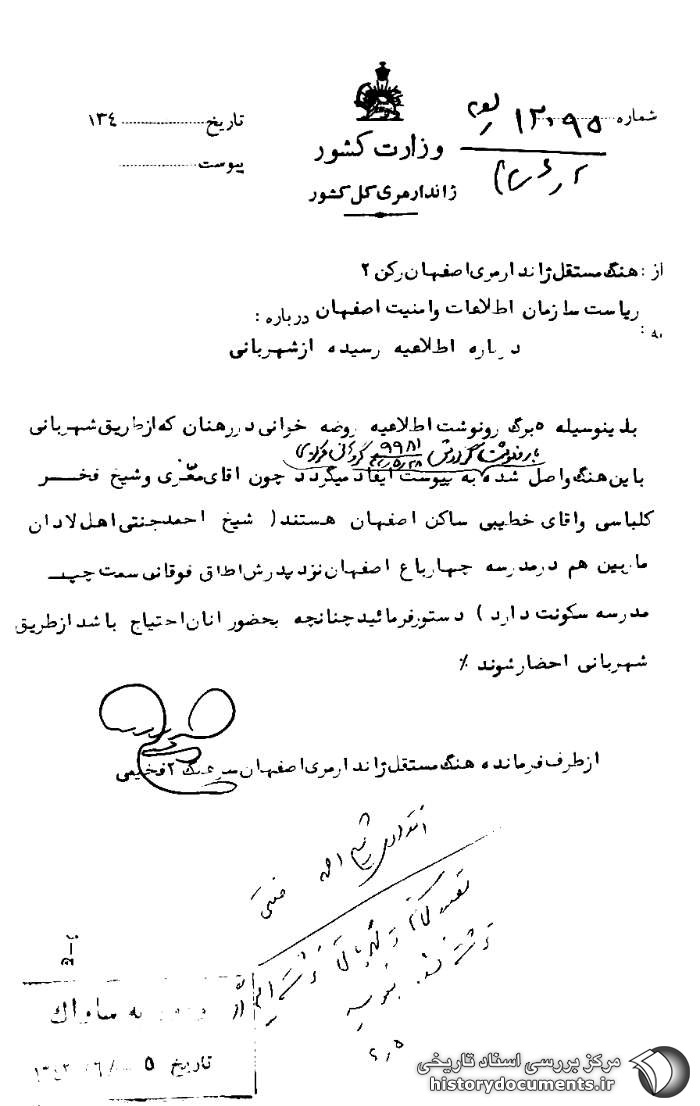 شماره ۱۲۰۹۵
تاریخ ۱۳٤
وزارت کشور
پیوست
ژاندارمری کل کشور
از: هنگ مستقل ژاندارمری اصفهان رکن ۲
به: ریاست سازمان اطلاعات وامنیت اصفهان درباره:
درباره اطلاعیه رسیده ازشهربانی
بدینوسیله ۵برگ رونوشت اطلاعیه روضه خوانی دررهنان که ازطریق شهربانی
بارونوشت گزارش ۹۹۸۱ گروهان مرکزی
باین هنگ واصل شده به پیوست ایفاد میگردد چون اقای معزی وشیخ فخر
کلباسی واقای خطیبی ساکن اصفهان هستند( شیخ احمدجنتی اهل لادان
ماربین هم درمدرسه چهارباغ اصفهان نزدپدرش اطاق فوقانی سمت چپ
مدرسه سکونت دارد) دستورفرمائیدچنانچه بحضور انان احتیاج باشد ازطریق
شهربانی احضارشوند ٪
ازطرف فرمانده هنگ مستقل ژاندارمری اصفهان سرهنگ ۲ فخیمی
شیخ احمد جنتی
به ساواك
تاریخ ۵
مرکز بررسی اسناد تاریخی
historydocuments.ir